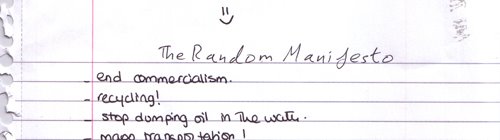 =)
The Random Manifesto
- end commercialism.
- recycling!
- stop dumping oil in the water.
- mass transportation!